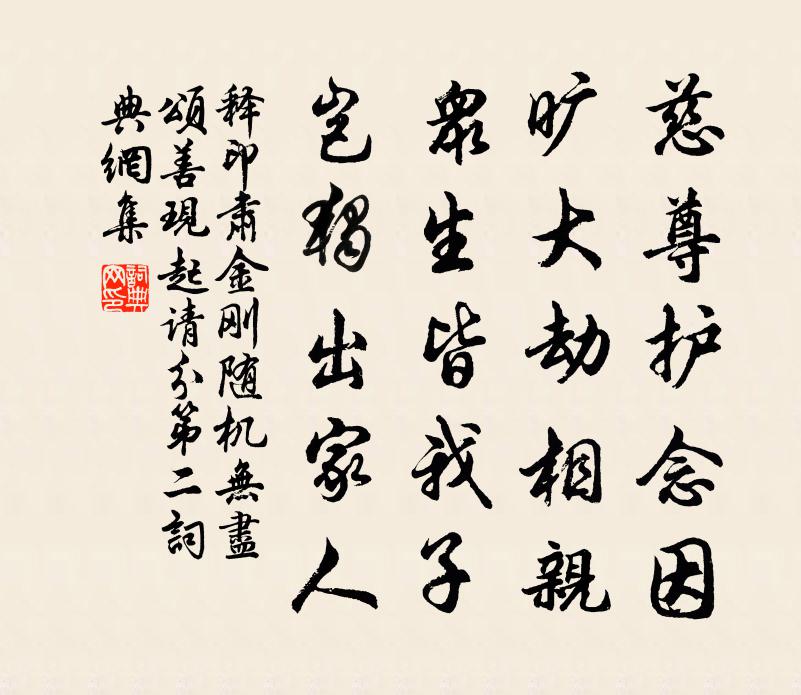 慈尊护念因
旷大劫相親
眾生皆我子
岂独出家人
释印肅金刚随机無盡
頌善現起请分第二詞
典網集
詞典网印